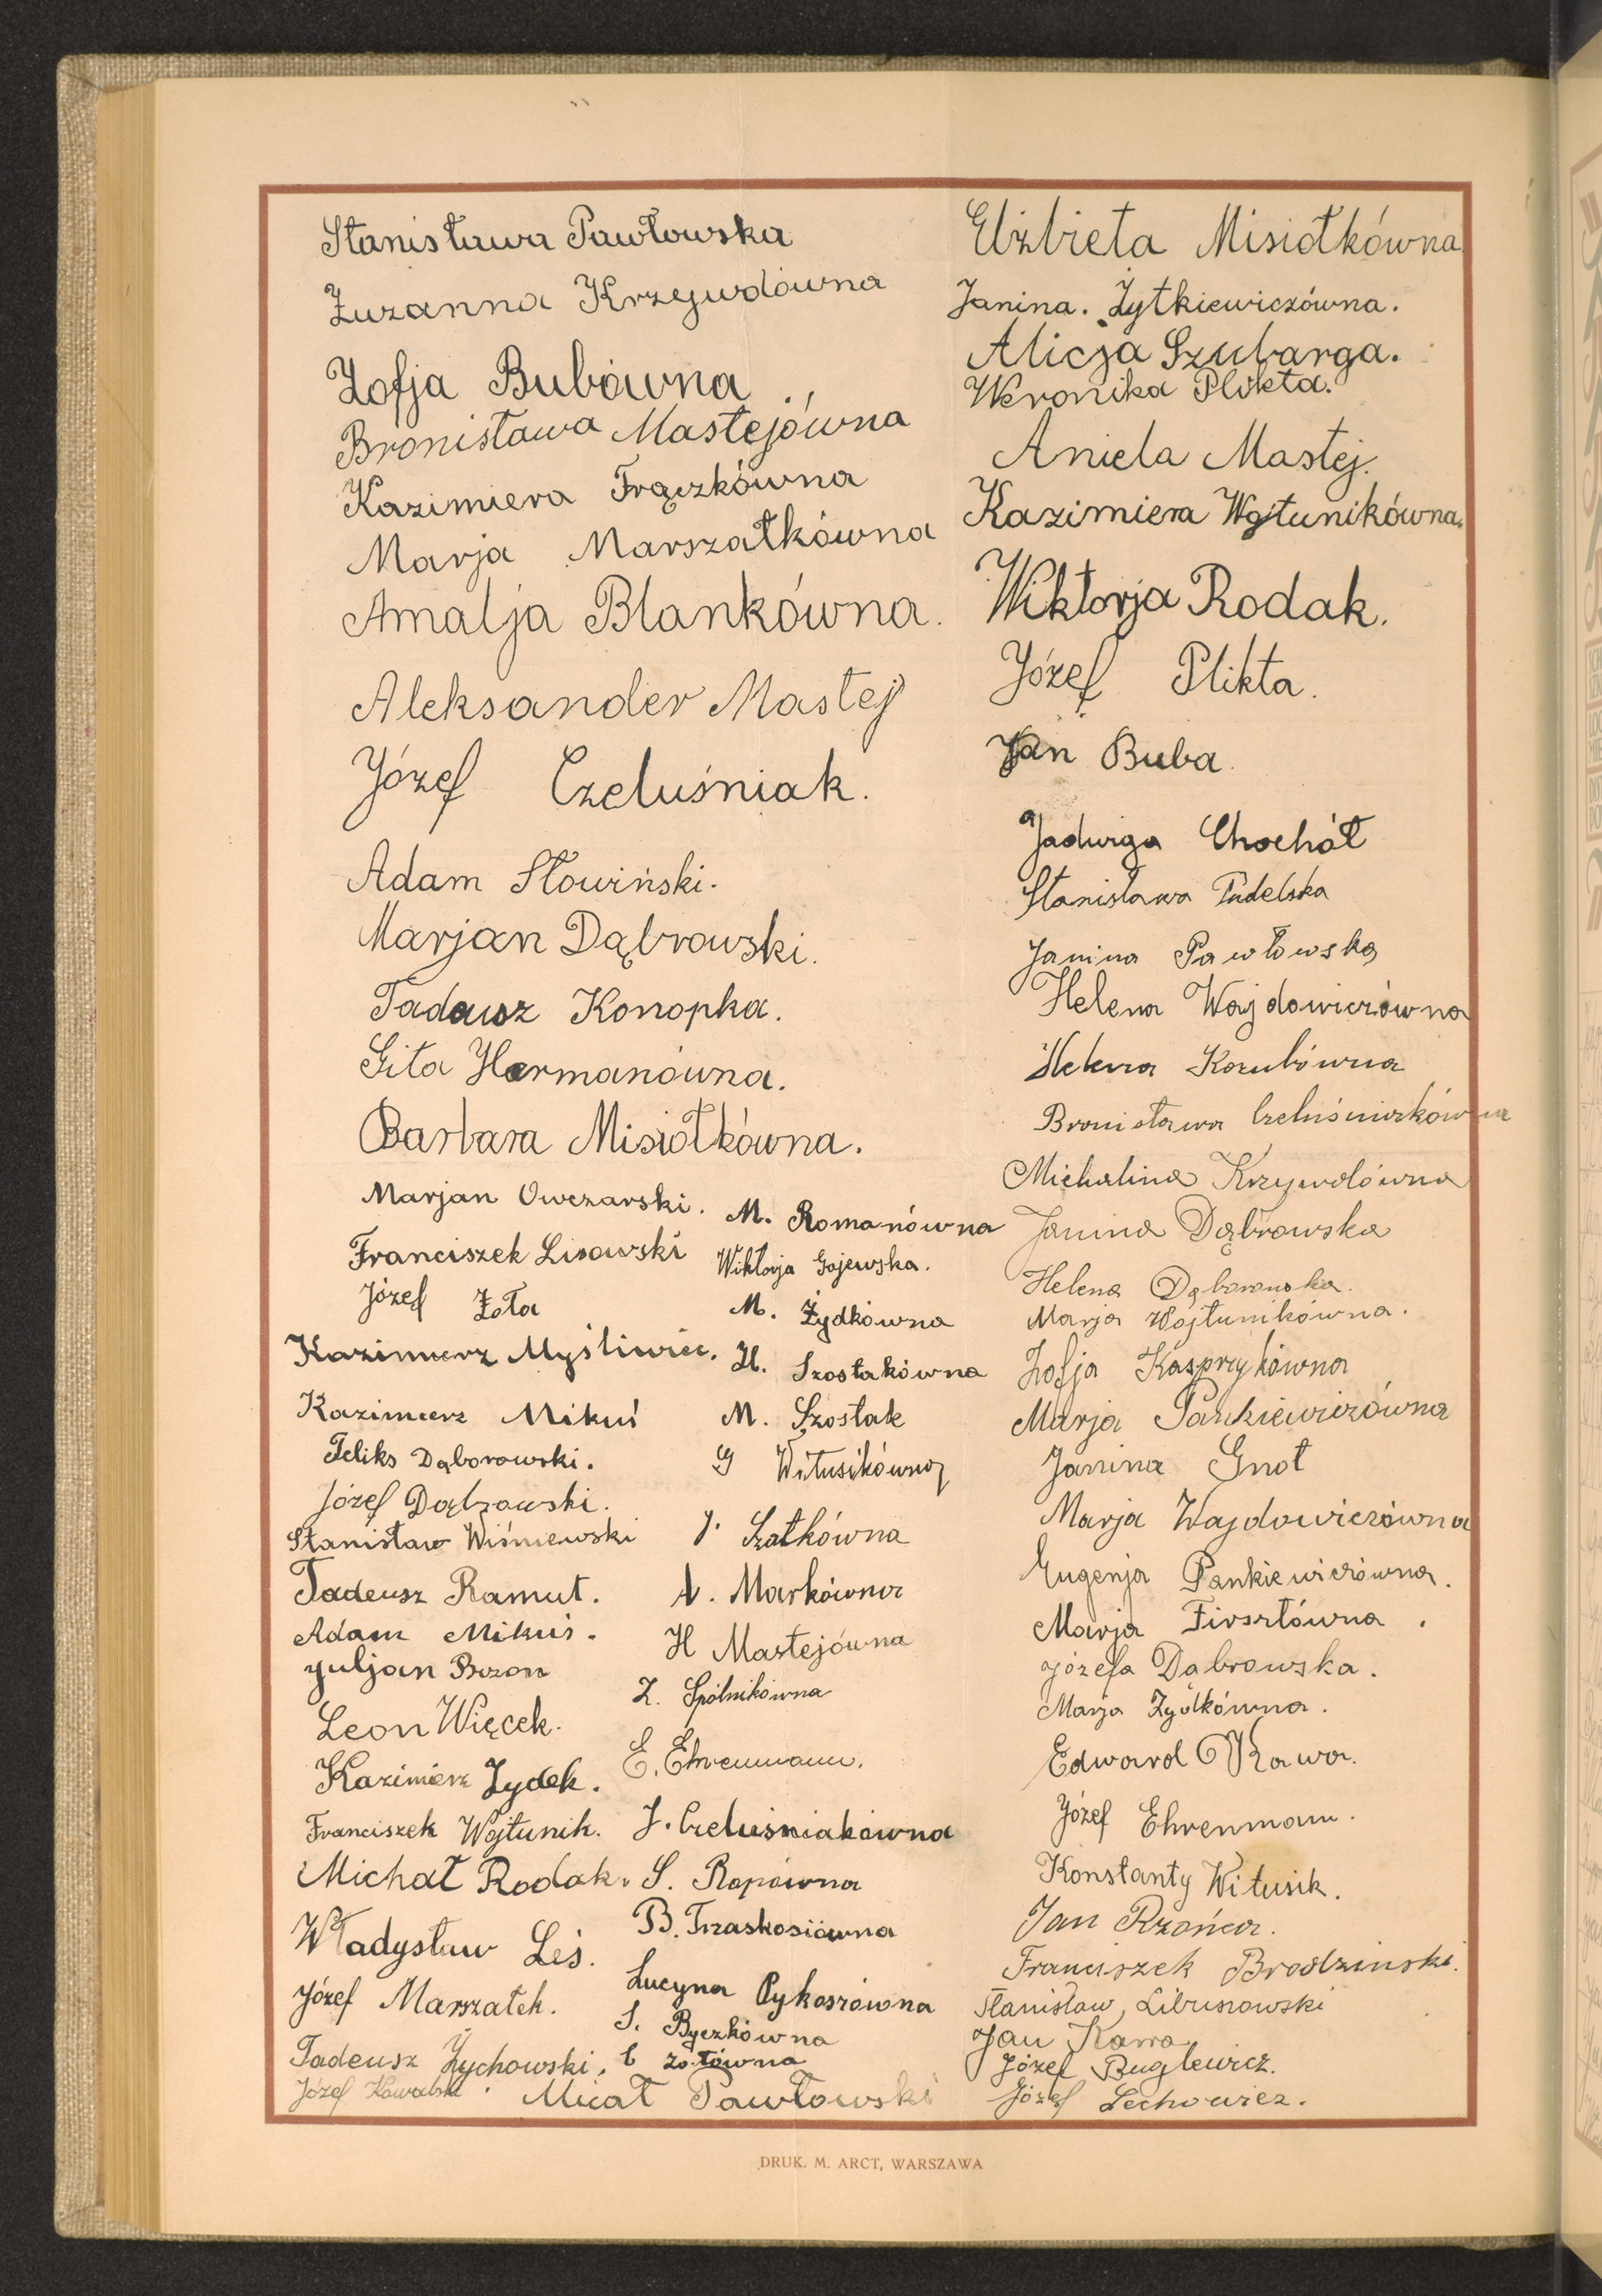 Stanisława Pawłowska
Zuzanna Krzywdówna
Zofja Bubówna
Bronisława Mastejówna
Kazimiera Frączkówna
Marja Marszałkówna
Amalja Blankówna.
Aleksander Mastej
Józef Czeluśniak.
Adam Słowiński.
Marjan Dąbrowski.
Tadeusz Konopka.
Gita Hermanówna.
Barbara Misiołkówna.
Marjan Owczarski.
Franciszek Lisowski
Józef Zoła
Kazimierz Myśliwiec.
Kazimierz Mikuś
Feliks Dąborowski.
Józef Dąbrowski.
Stanisław Wiśniewski
Tadeusz Ramut.
Adam Mikuś.
Juljan Bozon
Leon Więcek.
Kazimierz Zydek.
Franciszek Wojtunik.
Michał Rodak.
Władysław Leś.
Józef Marszałek.
Tadeusz Żychowski.
Józef Kowalski
M. Romanówna
Wiktorja Gajewska.
M. Żydkówna
H. Szostakówna
M. Szostak
G Witusikówna
J. Szatkówna
A. Markówna
H Mastejówna
Z. Spólnikówna
E. Ehrenmann.
J. Czeluśniakówna
S. Rapówna
B. Trzaskosiówna
Lucyna Pykoszówna
S. Byczkówna
C Zołówna
Micał Pawłowski
Elżbieta Misiołkówna
Janina. Żytkiewiczówna.
Alicja Szubarga.
Weronika Plikta.
Aniela Mastej.
Kazimiera Wojtunikówna.
Wiktorja Rodak.
Józef Plikta.
Jan Buba.
Jadwiga Chochół
Stanisława Pudelska
Janina Pawłowska
Helena Wajdowiczówna
Helena Kozubówna
Bronisława Czeluśniakówna
Michalina Krzywdówna
Janina Dąbrowska
Helena Dąborowska.
Marja Wojtunikówna.
Zofja Kasprzykówna
Marja Pankiewiczówna
Janina Gnot
Marja Wajdowiczówna
Eugenja Pankiewiczówna.
Marja Firsztówna.
Józefa Dąbrowska.
Marja Zydkówna.
Edward Kawa.
Józef Ehrenmann.
Konstanty Witusik.
Jan Rzońca.
Franciszek Brodzinski.
Stanisław Libuszowski
Jan Kawa
Józef Buglewicz.
Józef Lechowicz.
DRUK. M. ARCT, WARSZAWA